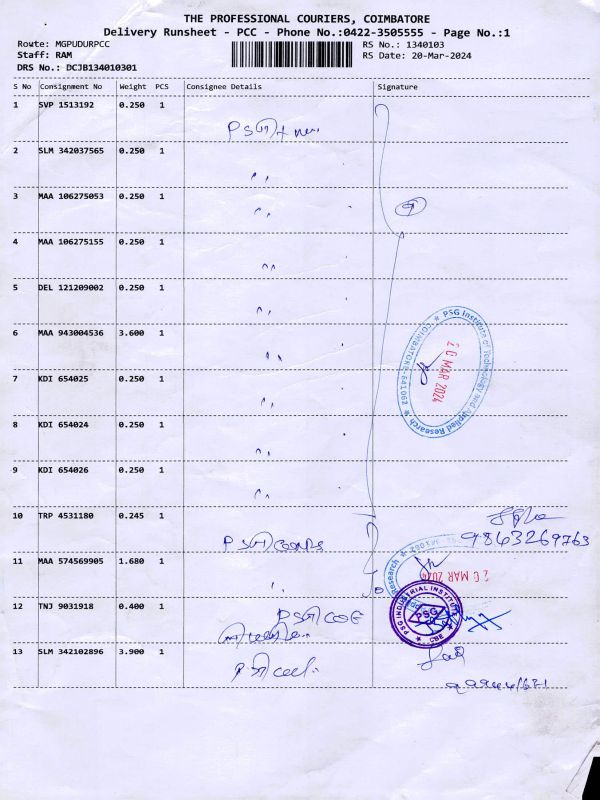 THE PROFESSIONAL COURIERS, COIMBATORE
Delivery Runsheet - PCC - Phone No.:0422-3505555 - Page No.:1
Route: MGPUDURPCC RS No.: 1340103
Staff: RAM RS Date: 20-Mar-2024
DRS No.: DCJB134010301
S No Consignment No Weight PCS Consignee Details Signature
1 SVP 1513192 0.250 1
2 SLM 342037565 0.250 1
3 MAA 106275053 0.250 1
4 MAA 106275155 0.250 1
5 DEL 121209002 0.250 1
6 MAA 943004536 3.600 1
PSG Institute of Technology and Applied Research
COIMBATORE-641062
20 MAR 2024
7 KDI 654025 0.250 1
8 KDI 654024 0.250 1
9 KDI 654026 0.250 1
10 TRP 4531180 0.245 1
9863269763
11 MAA 574569905 1.680 1
20 MAR 2024
12 TNJ 9031918 0.400 1
PSG COE
PSG INDUSTRIAL INSTITUTE
PSG
CBE
13 SLM 342102896 3.900 1